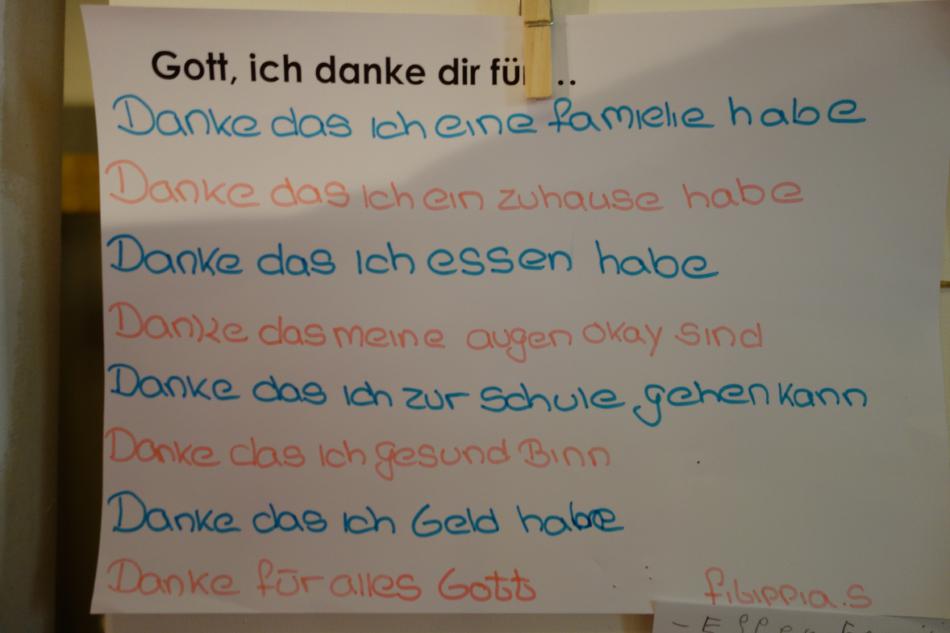 Gott, ich danke dir für ..
Danke das ich eine famielie habe
Danke das ich ein zuhause habe
Danke das ich essen habe
Danke das meine augen okay sind
Danke das ich zur schule gehen kann
Danke das ich gesund Binn
Danke das ich Geld habe
Danke für alles Gott
filippia.s